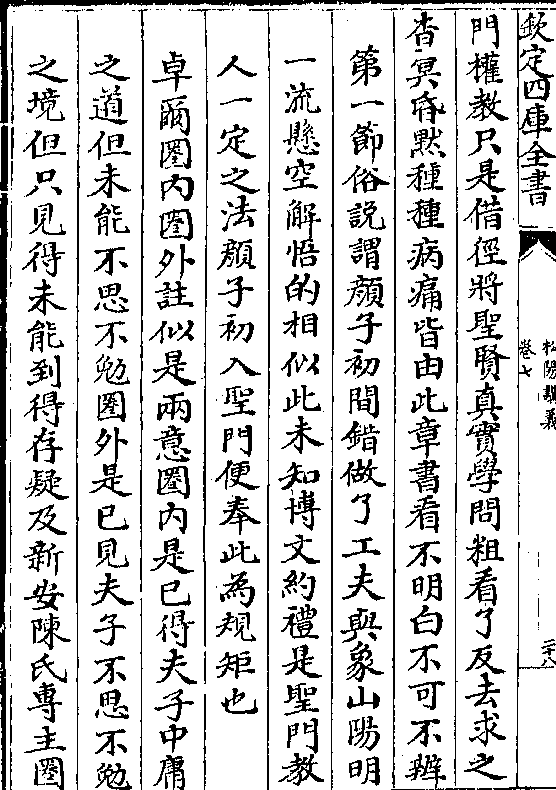 欽定四庫全書
松陽講義
卷七
二十八
門權教只是借徑將聖賢真實學問粗看了反去求之
杳冥昏黙種種病痛皆由此章書看不明白不可不辨
第一節俗說謂顔子初間錯做了工夫與象山陽明
一流懸空解悟的相似此未知博文約禮是聖門教
人一定之法顔子初入聖門便奉此為規矩也
卓爾圏内圏外註似是兩意圏内是已得夫子中庸
之道但未能不思不勉圏外是已見夫子不思不勉
之境但只見得未能到得存疑及新安陳氏專主圏